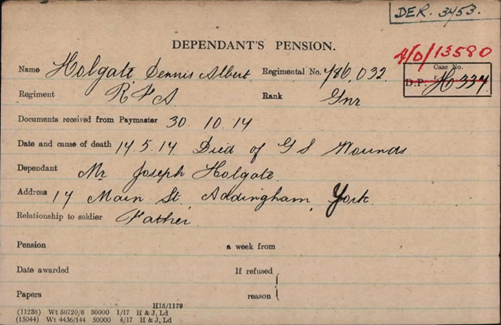 DER. 3453.
DEPENDANT'S PENSION.
4/D/13580
Name Holgate, Dennis Albert Regimental No. 786,032 Case No.
Regiment R.F.A Rank Gnr D.P. H 337
Documents received from Paymaster 30. 10. 17
Date and cause of death 17. 5. 17 Died of G S Wounds
Dependant Mr Joseph Holgate.
Address 17 Main St, Addingham, York.
Relationship to soldier Father
Pension a week from
Date awarded If refused
Papers reason
H15/1179
(11236) Wt 50720/6 30000 1/17 H & J, Ld
(15044) Wt 4436/144 50000 4/17 H & J, Ld